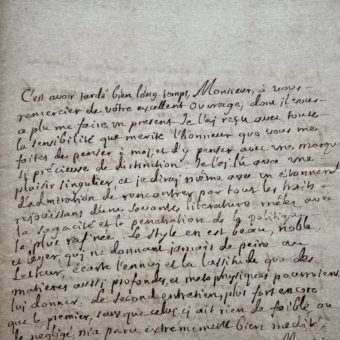 C'est avoir tardé bien long-temps, Monsieur, à vous
remercier de vôtre excellent ouvrage, dont il vous
a plu me faire un present. Je l'ai reçu avec toute
la sensibilité que merite l'honneur que vous me
faites de penser à moi, et d'y penser avec une marque
si précieuse de distinction. Je l'ai lû avec une
plaisir singulier et je dirai même avec un étonnement
d'admiration de rencontrer par tout les traits
rejouissans d'une sçavante literature, mêlés avec
la sagacité et la penetration de la politique
le plus rafinée. Le style en est beau, noble
et leger, qui ne donnant jamais de peine au
Lecteur, écarte l'ennui et la lassitude que des
matieres aussi profondes, et metaphysiques pourroient
lui donner. Le second entretien, plus fort encore
que le premier, sans que celui-ci ait rien de faible ou
de neglige, m'a paru extremement bien medité.